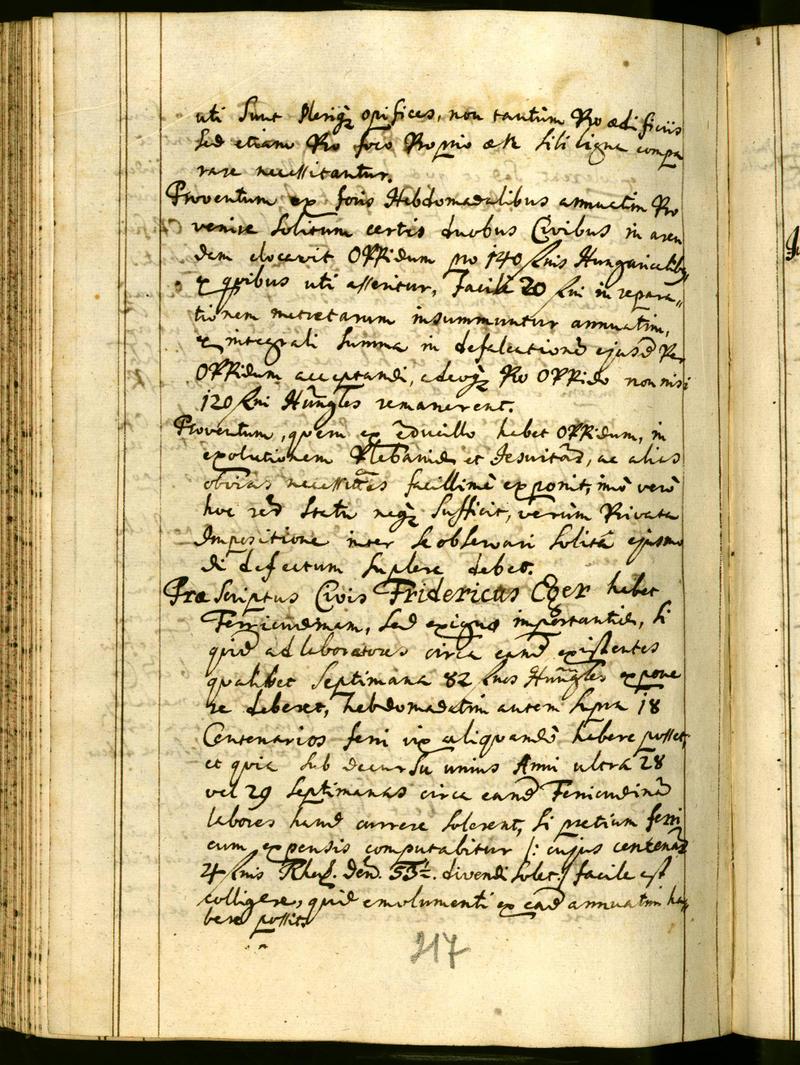 uti Sunt Pleriq; opifices, non tantum Pro ædificiis
sed etiam Pro foco Proprio sibi ligna compa
rare necessitantur.
Proventum ex foris Hebdomadalibus annuatim Pro
venire Solitum certis duobus Civibus in aren
dam elocavit OPPidum pro 140 flnis Hungaricalib9
ex quibus uti asseritur, facile 20 flni in repara„
tionem metretarum insummuntur annuatim,
ex integrali Summa in defalcationē ejusd Per
OPPidum acceptandi, adeoq; Pro OPPido non nisi
120 flni Hungles remanerent.
Proventum, quem ex Educillo habet OPPidum, in
exolutionem Plebani et Jesuitar, ac alias
obvias necessittes facillimè exponit, imò verò
hoc Statu neq; Sufficit, verùm Privata
Impositione inter Se observari Solitâ ejusmo
di defectum Suplere debet.
PræScriptus Civis Fridericus Eger habet
Ferricudinam, Sed exiguæ importantiæ, Si
quid ad laboratores circa eand existentes
qualibet Septimana 82 flnos Hungles expone
re deberet, hebdomadatim autem Supra 18
Centenarios ferri vix aliquando habere posset,
et quia Sub decursu unius Anni ultra 28
vel 29 Septimanas circa eand Ferricudinā
labores haud currere Solerent, Si pretium ferri
cum expensis computabitur /: cujus centenar
4 flnis Rhen. den. divendi Solet :/ facile est
colligere, quid emolumenti ex ead annuatim ha„
bere possit.
217